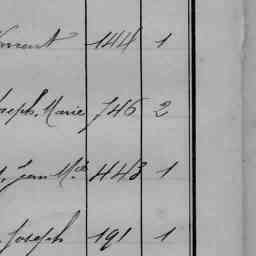 Vincent 144 1
Joseph, Marie 746 2
, Jean Mie 443 1
, Joseph 191 1